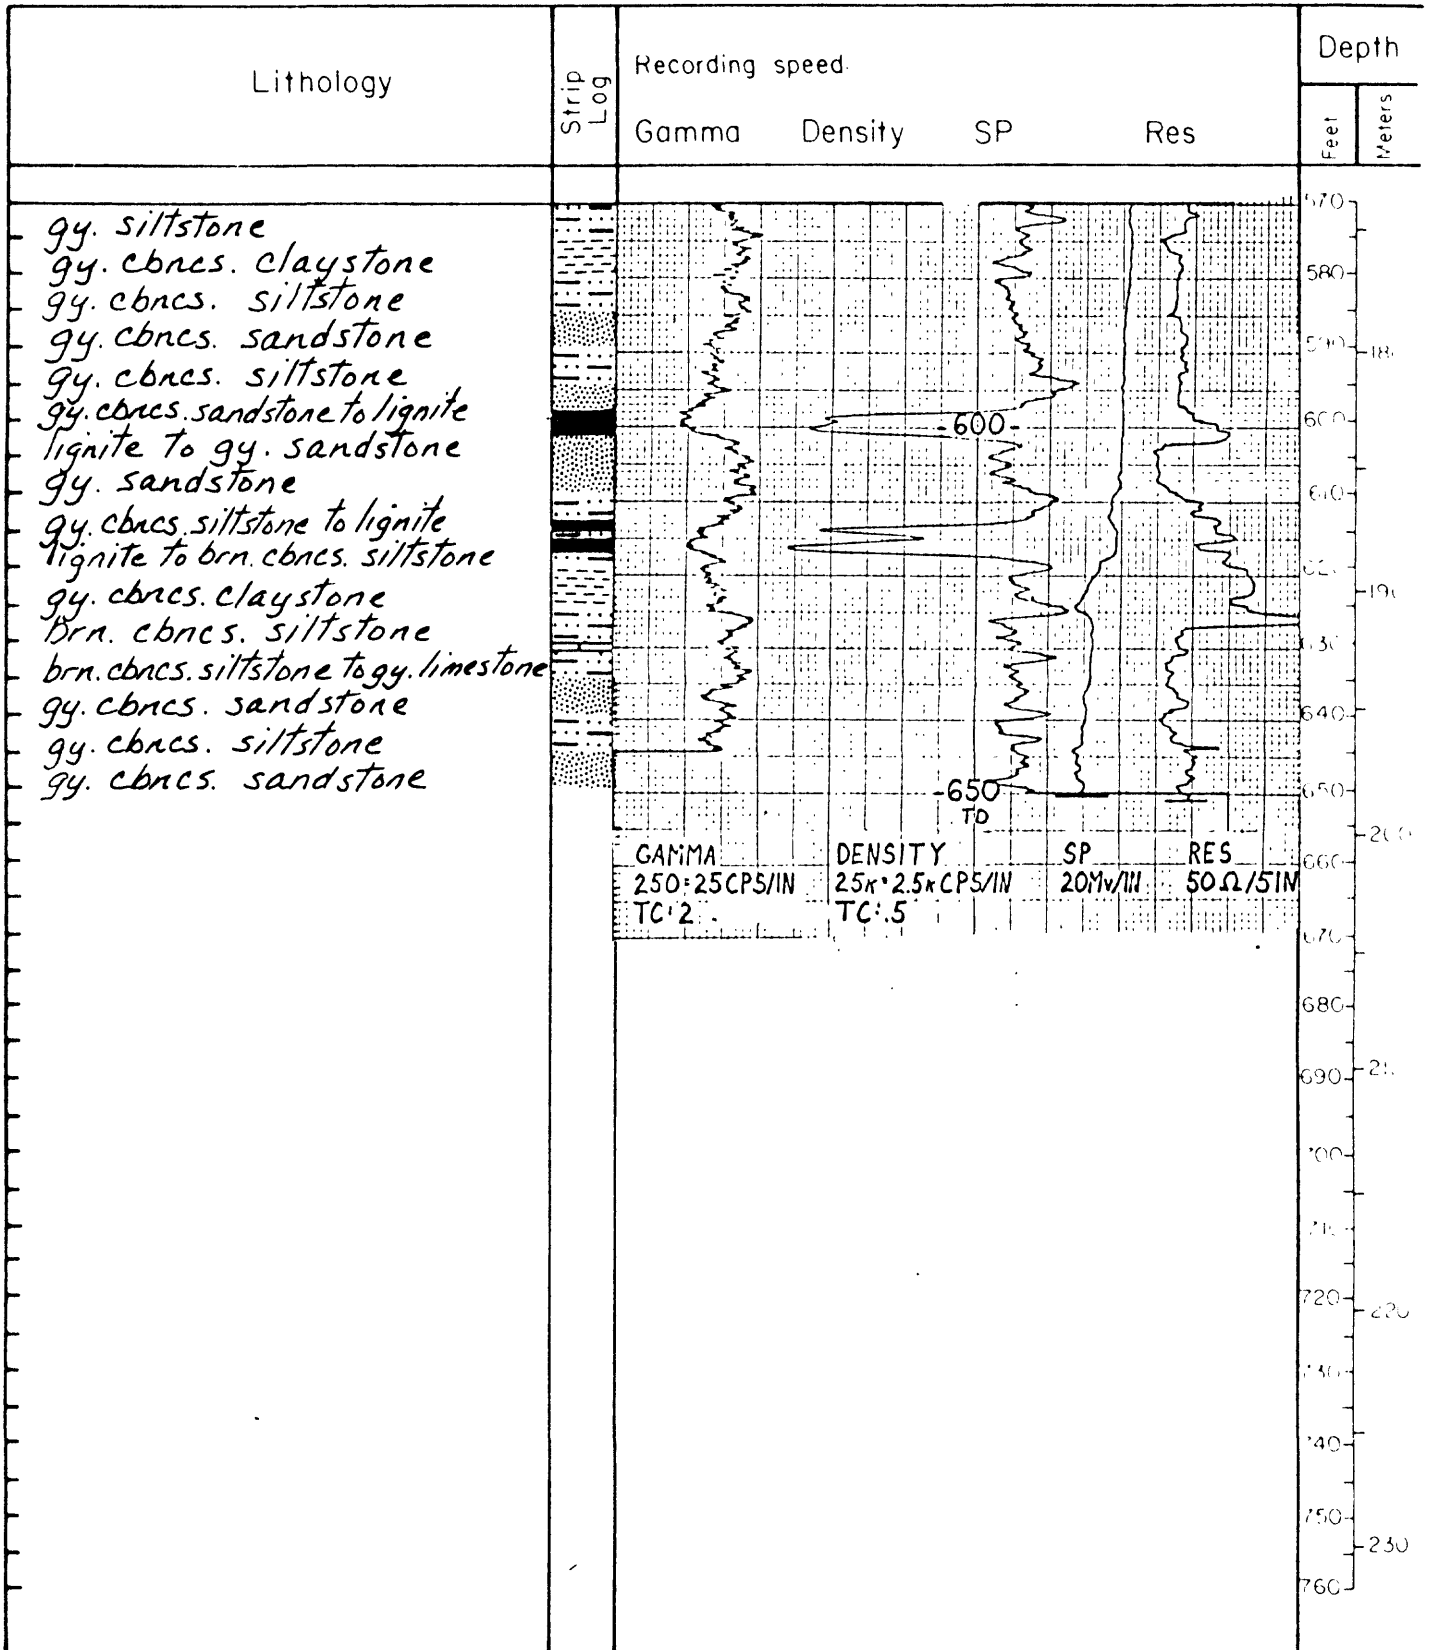 Lithology
Strip Log
Recording speed
Gamma Density SP Res
Depth
Feet
Meters
gy. siltstone
gy. cbncs. claystone
gy. cbncs. siltstone
gy. cbncs. sandstone
gy. cbncs. siltstone
gy. cbncs. sandstone to lignite
lignite to gy. sandstone
gy. sandstone
gy. cbncs. siltstone to lignite
lignite to brn. cbncs. siltstone
gy. cbncs. claystone
brn. cbncs. siltstone
brn. cbncs. siltstone to gy. limestone
gy. cbncs. sandstone
gy. cbncs. siltstone
gy. cbncs. sandstone
600
650
TD
GAMMA
250=25CPS/IN
TC:2
DENSITY
25K·2.5K CPS/IN
TC:.5
SP
20Mv/IN
RES
50Ω/5IN
580
600
640
650
660
680
690
720
750
760
220
230